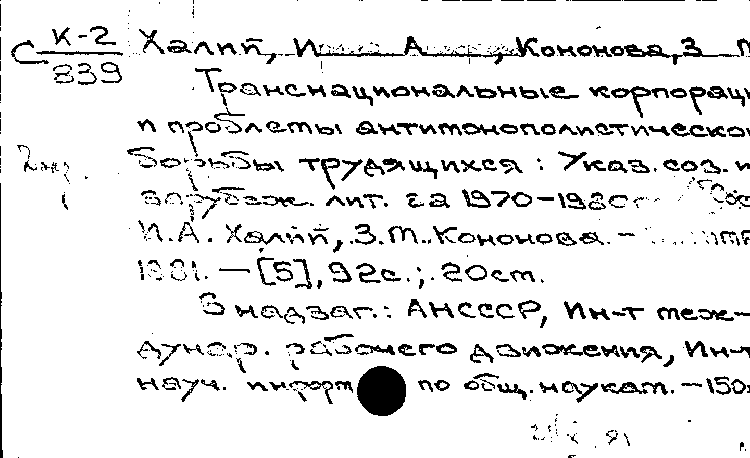 С К-2
839
Халий, И А , Кононова, З М
Транснациональные корпораци
и проблемы антимонополистической
борьбы трудящихся : Указ. соз. и
2 экз.
зарубеж. лит. за 1970-1980 Сос
И.А. Халий, З.М. Кононова. -
1981. - [5], 92с.; 20см.
В надзаг.: АН СССР, Ин-т меж-
дунар. рабочего движения, Ин-т
науч. информ по общ. наукам. - 150